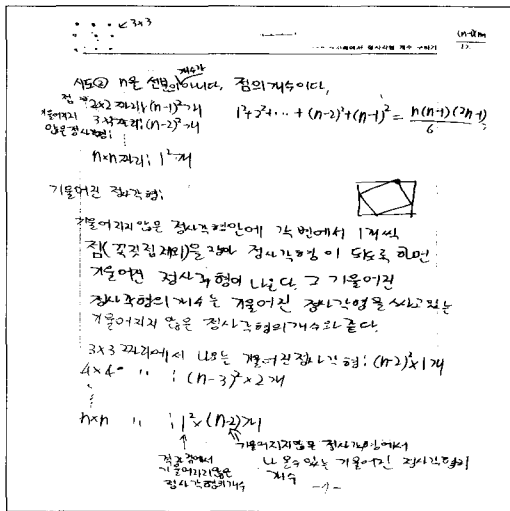 3x3
정사각형 개수 구하기
시도② n은 선분의 개수가 아니다, 점의 개수이다,
점
기울어지지 않은 정사각형:
2x2 짜리: (n-1)²개
3x3짜리: (n-2)²개
n×n 짜리: 1²개
1²+2²+⋯+(n-2)²+(n-1)² = n(n-1)(2n-1)/6
기울어진 정사각형:
기울어지지 않은 정사각형안에 각 변에서 1개씩
점(꼭짓점 제외)을 잡아 정사각형이 되도록 하면
기울어진 정사각형이 나온다. 그 기울어진
정사각형의 개수는 기울어진 정사각형을 싸고 있는
기울어지지 않은 정사각형의 개수와 같다.
3x3 짜리에서 나오는 기울어진 정사각형: (n-2)²×1개
4x4 " " : (n-3)²×2개
n×n " " : 1²×(n-2)개
기울어지지 않은 정사각형에서
나올수 있는 기울어진 정사각형의
개수
기울어지지 않은
정사각형의 개수